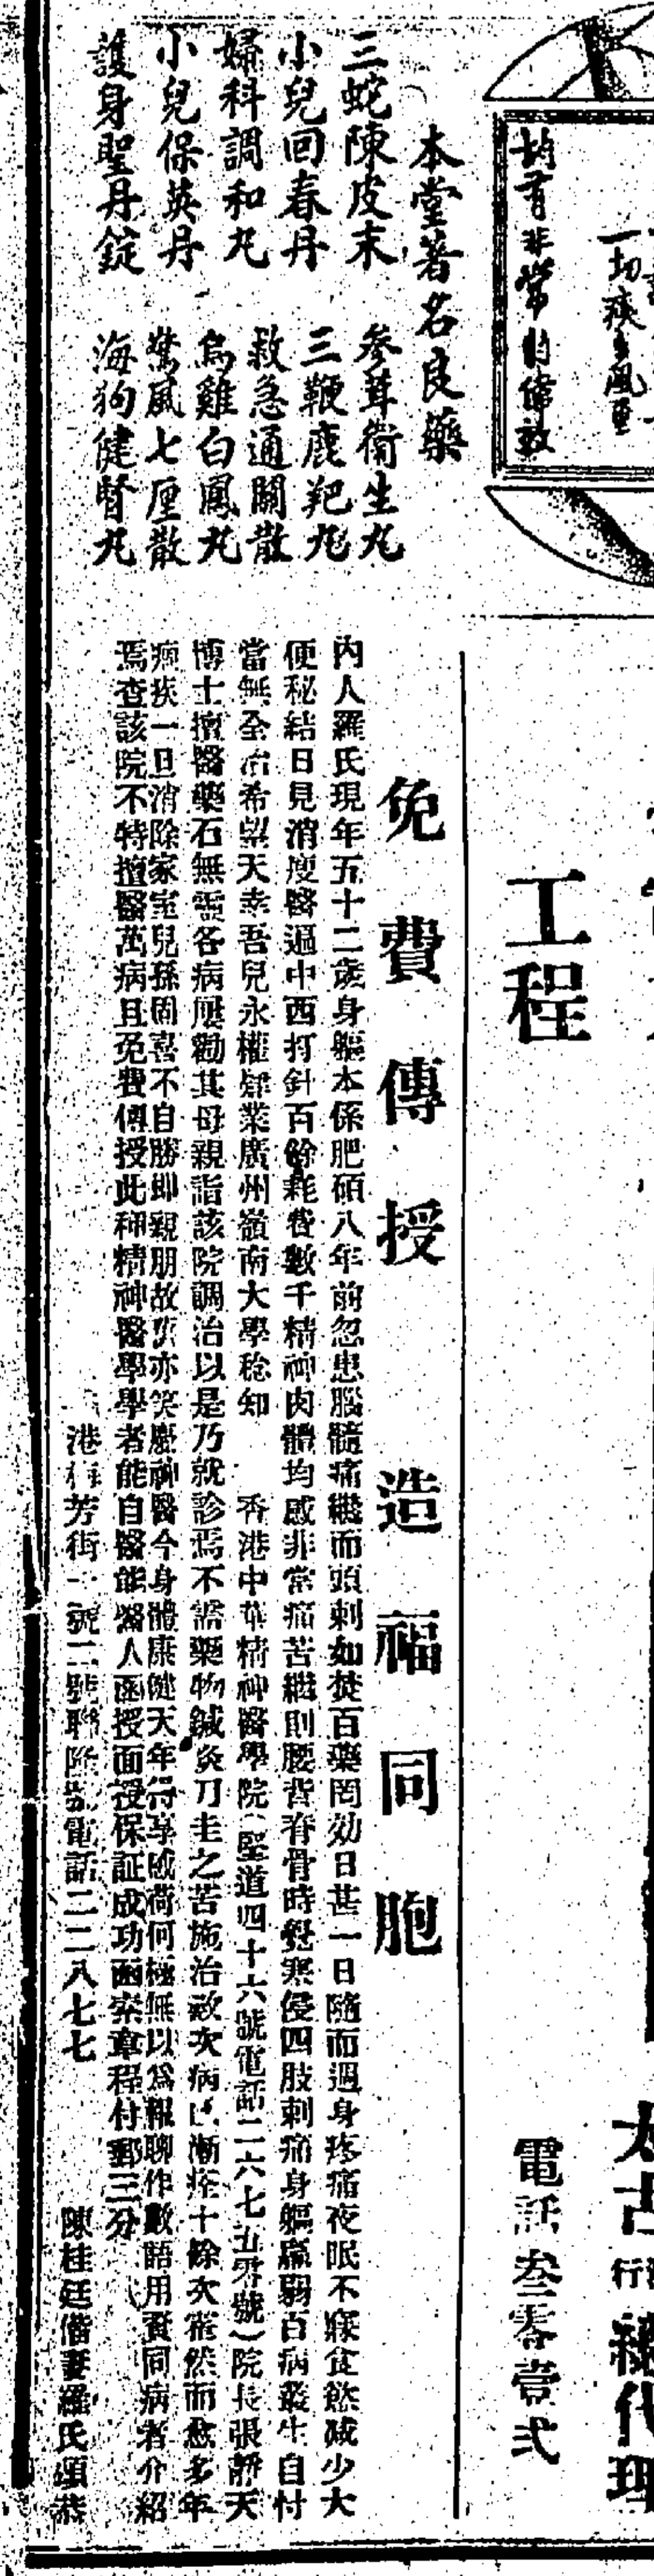 均有非常的偉效
本堂著名良藥
三蛇陳皮末
參茸衞生丸
小兒回春丹
三鞭鹿羓丸
婦科調和丸
救急通關散
小兒保英丹
烏雞白鳳丸
護身聖丹錠
驚風七厘散
海狗健腎丸
工程
電話叁零壹弍
太古
行
總代理
免費傳授 造福同胞
內人羅氏現年五十二歲身軀本係肥碩八年前忽患腦髓痛繼而頭刺如焚百藥罔効日甚一日隨而週身疼痛夜眠不寐食慾减少大
便秘結日見消瘦醫過中西打針百餘耗費數千精神肉體均感非常痛苦繼則腰背脊骨時覺寒侵四肢刺痛身軀羸弱百病叢生自忖
當無全治希望天幸吾兒永權肄業廣州嶺南大學稔知 香港中華精神醫學院(堅道四十六號電話二六七五零號)院長張靜天
博士擅醫藥石無靈各病屢勸其母親詣該院調治以是乃就診焉不需藥物鍼灸刀圭之苦施治數次病已漸痊十餘次霍然而愈多年
痼疾一旦消除家室兒孫固喜不自勝即親朋故舊亦笑慶神醫今身體康健天年得享感荷何極無以爲報聊作數語用資同病者介紹
焉查該院不特擅醫萬病且免費傳授此種精神醫學學者能自醫能醫人函授面授保証成功函索章程付郵三分
港 芳街 號二號聯隆號電話二二八七七 陳桂廷偕妻羅氏頌恭